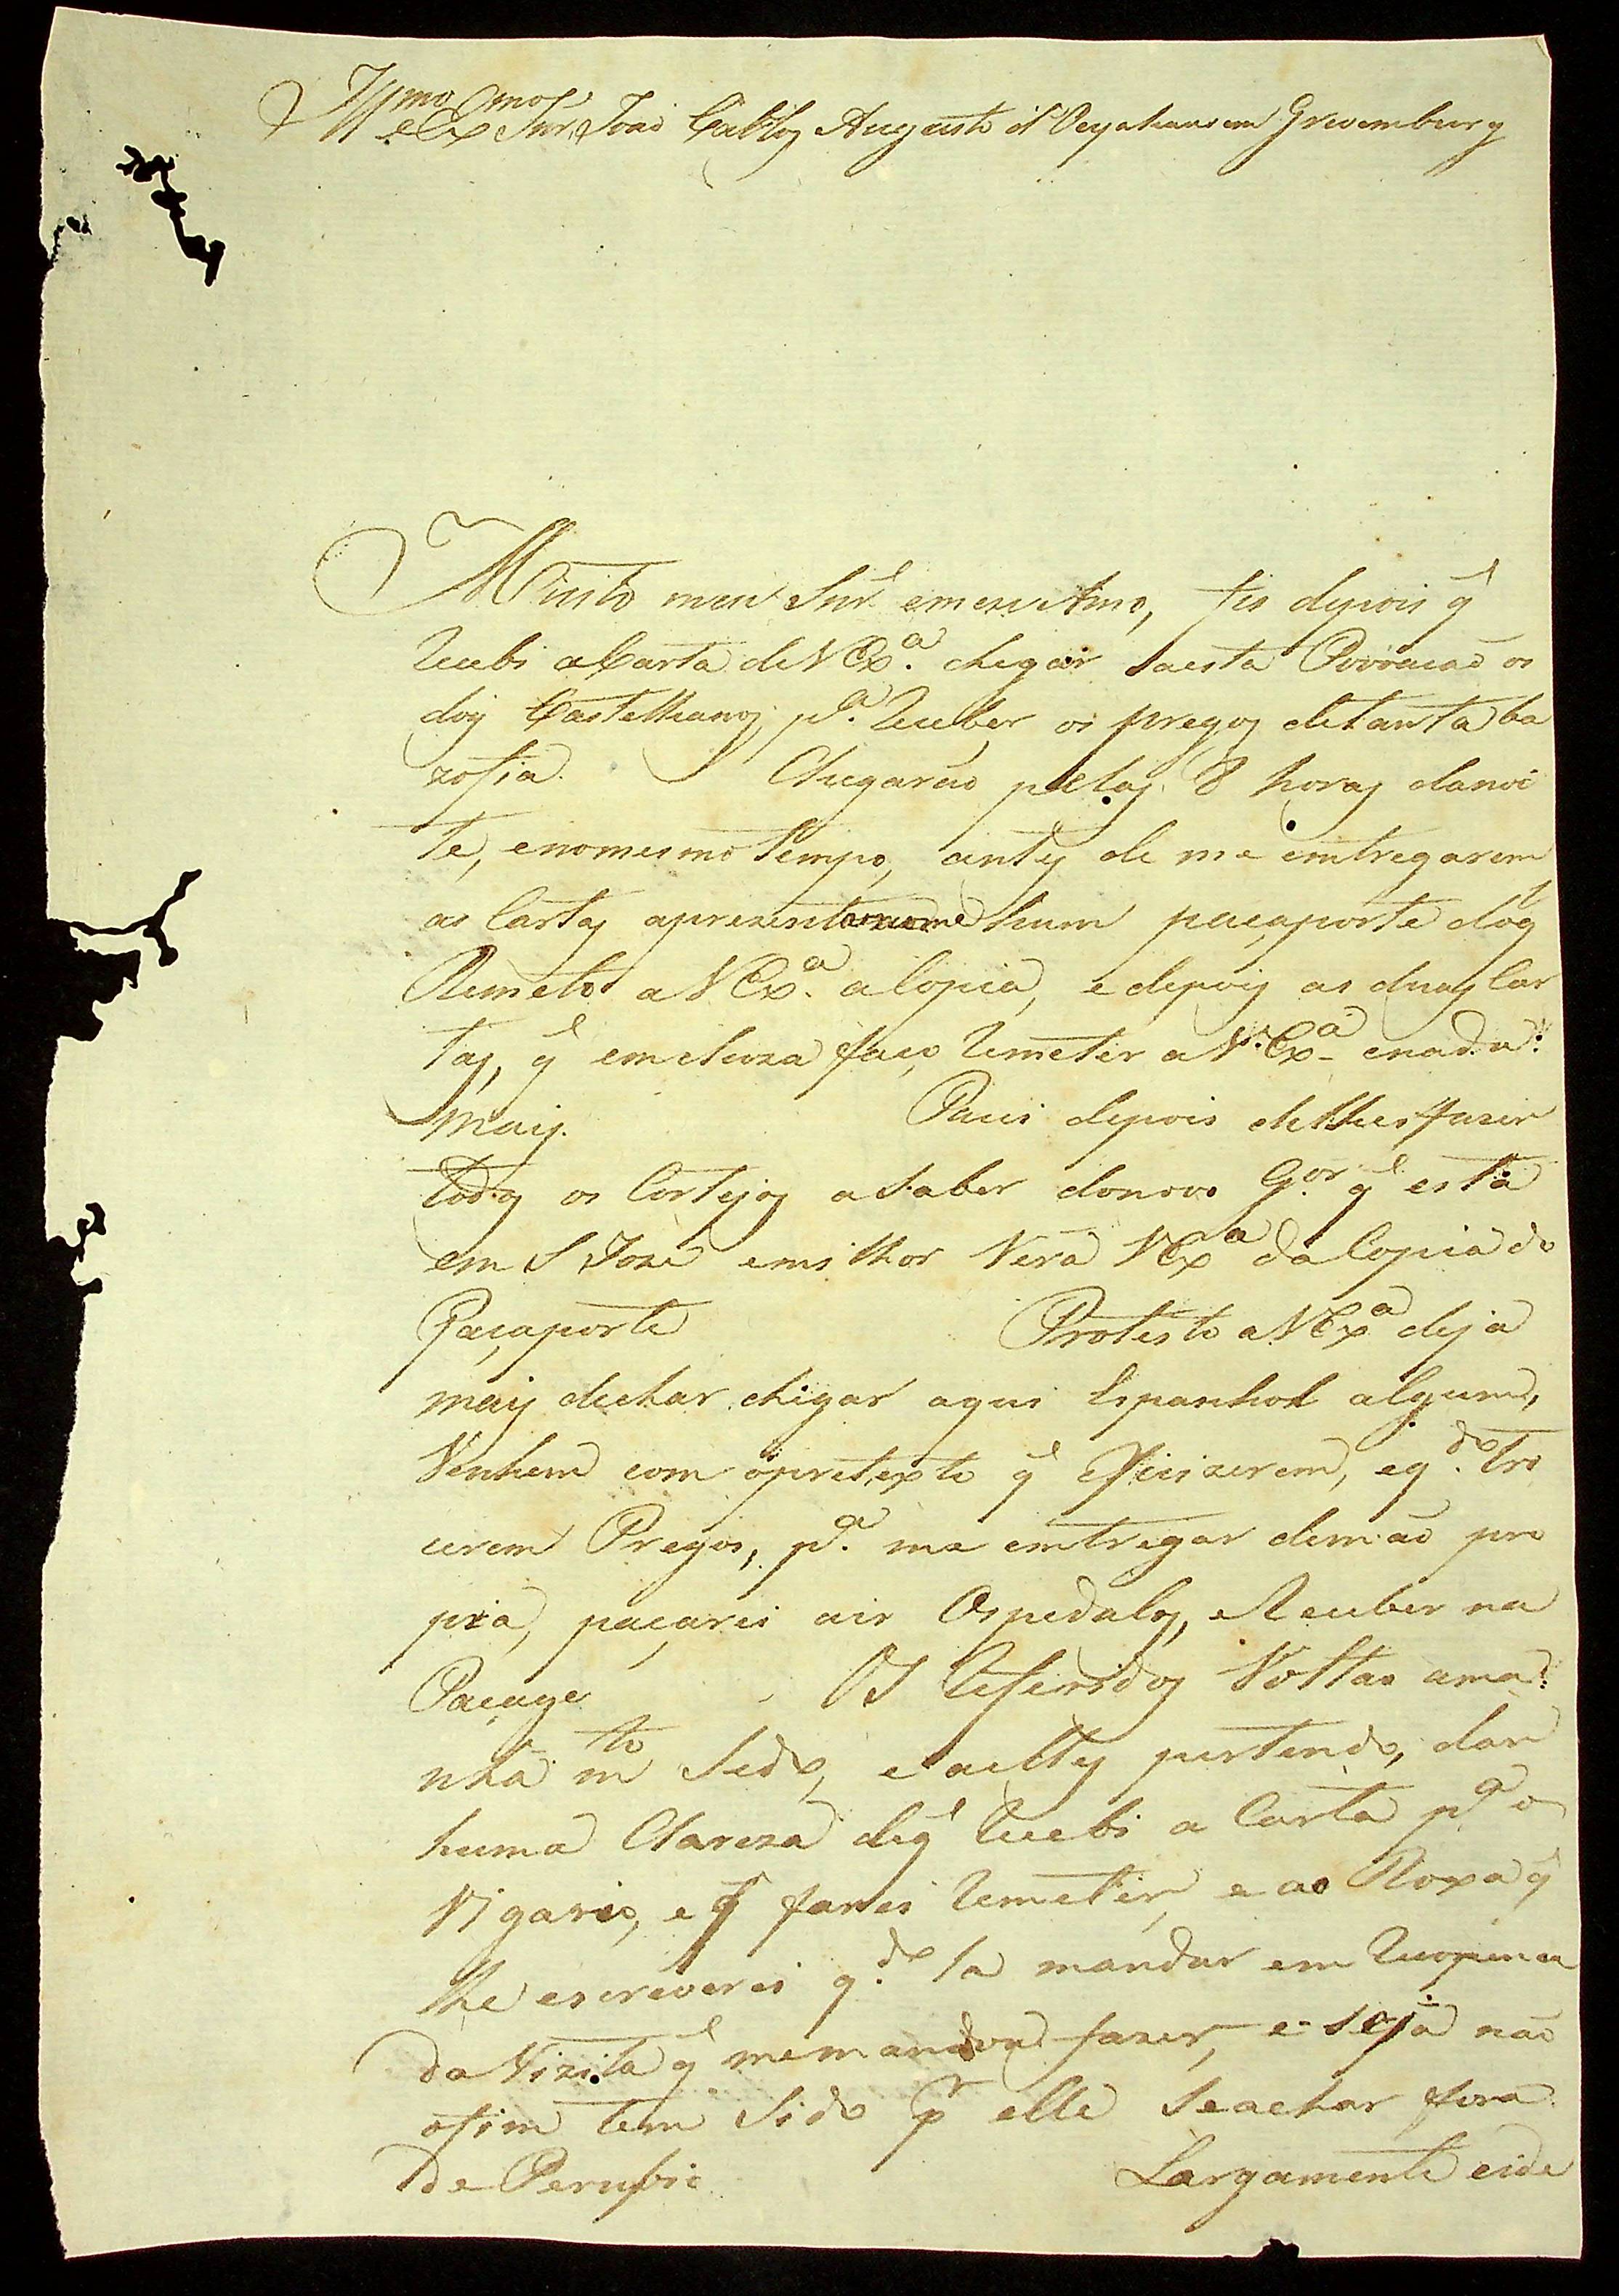 Illmo e Exmo Snr. João Carlos Augusto d'Oeynhausem Grevemburg
Muito meu Snr e meu Amo, fis depois q̃
recebi a Carta de V Exa. chegar a esta Povoacaõ os
doiz Castelhanoz pa. receber os pregoz de tanta ba
zofia. Chegaraõ pelaz 8 horaz da noi
te, e no mesmo tempo, antez de me emtregarem
as Cartaz aprezentaraõme hum paçaporte do q̃
Remeto a V Exa. a Copia, e depoiz as duaz Car
taz, q̃ emcluza faço remeter a V. Exa e nada
maiz. Pacei depois delhes fazer
todoz os Cortejoz a saber do novo Gor. q̃ està
em S Joze e milhor Verà V Exa da Copia do
Paçaporte Protesto a V Exa de ja
maiz deichar chigar aqui Espanhol algum,
Venhem com o pretexto q̃ Quizerem, e qdo. tro
cerem Pregos, pa. me emtregar de maõ pro
pria, paçarei a ir Ospedaloz, e Receber na
Paçage. Os referidoz Voltaõ ama
nhã mto sedo, e a ellez pertendo, dar
huma Clareza de q̃ recebi a Carta pa o
Vigario, e q̃ farei remeter, e ao Roxa q̃
lhe escreverei qdo. la mandar em recompença
da Vizita q̃ me mandou fazer, e se ja naõ
o fim tem sido pr elle se achar fora
de Perubio Largamente eide